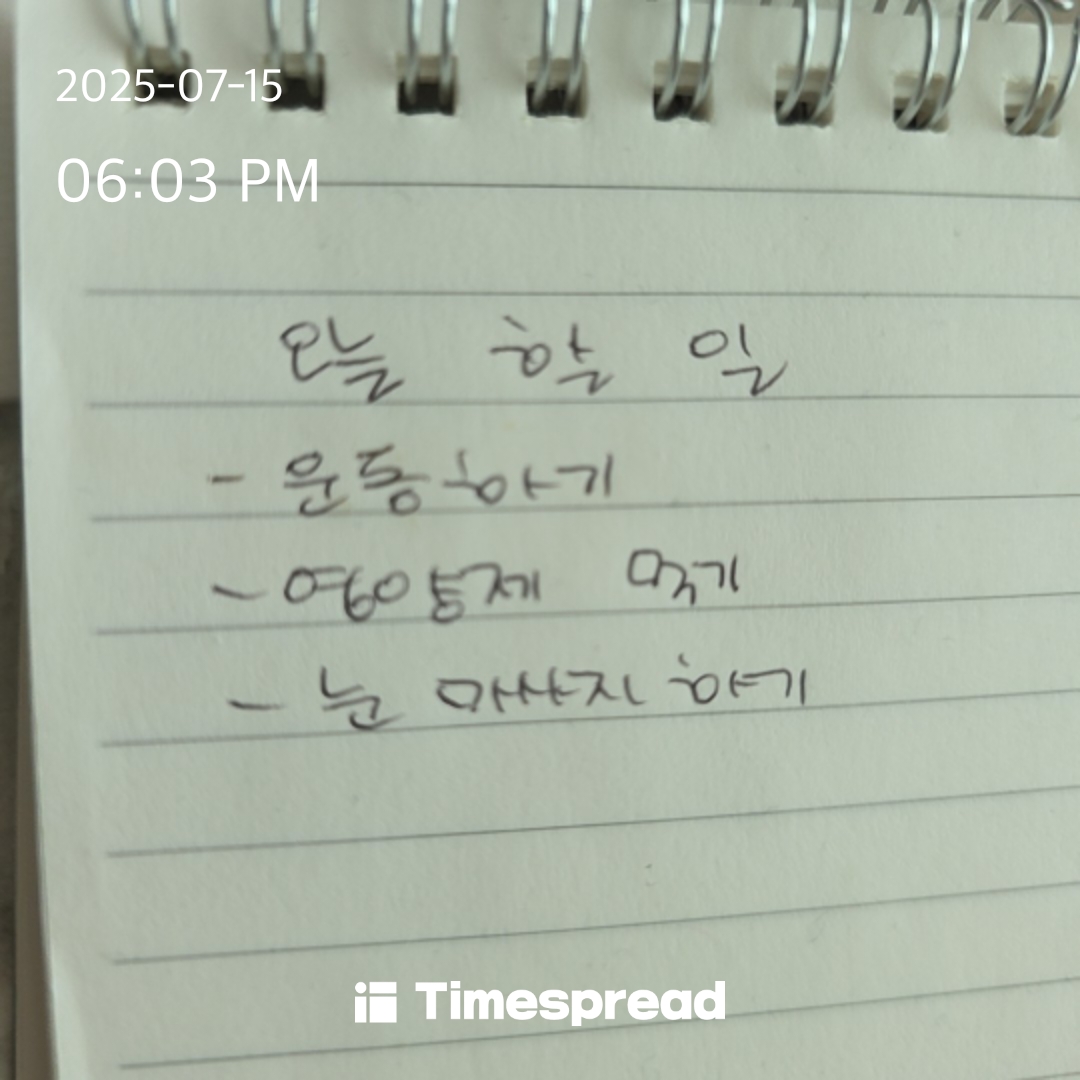 2025-07-15
06:03 PM
오늘 할 일
- 운동하기
- 영양제 먹기
- 눈 마사지 하기
Timespread